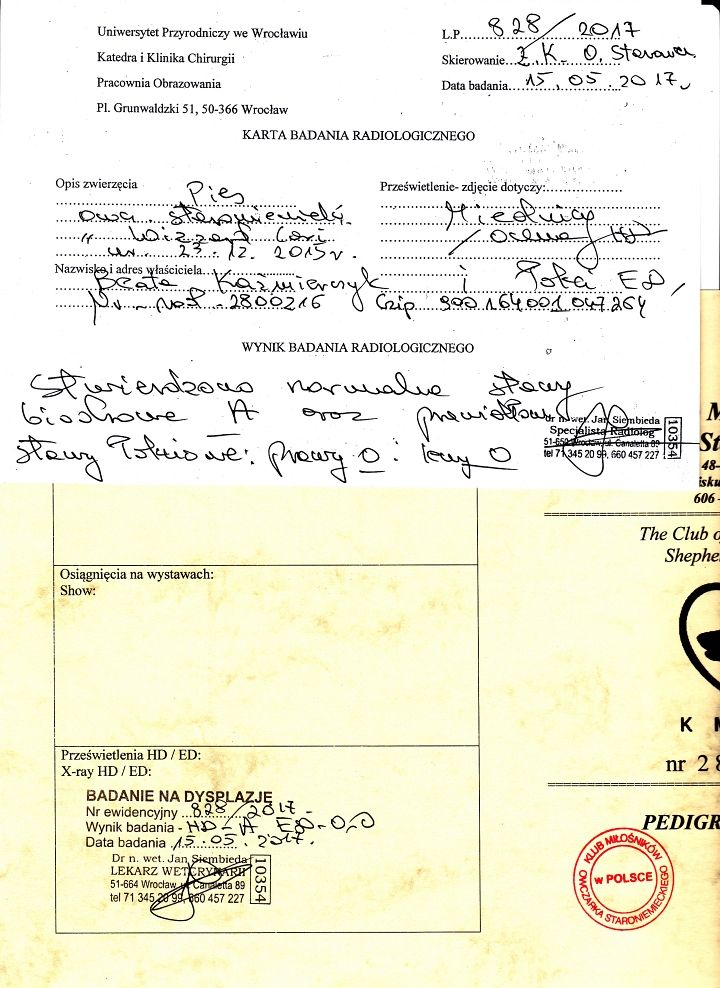 Uniwersytet Przyrodniczy we Wrocławiu
Katedra i Klinika Chirurgii
Pracownia Obrazowania
Pl. Grunwaldzki 51, 50-366 Wrocław
L.P. 828/2017
Skierowanie Z. K. O. Starow.
Data badania 15.05.2017
KARTA BADANIA RADIOLOGICZNEGO
Opis zwierzęcia Pies
owcz. staroniemiecki
ur. 23.12.2015 r.
Prześwietlenie- zdjęcie dotyczy:
Miednicy
/ocena HD
i łokci ED,
Nazwisko i adres właściciela
Beata Kaźmierczyk
2800216 Czip 900164001047264
WYNIK BADANIA RADIOLOGICZNEGO
Stwierdzono normalne stawy
biodrowe A oraz prawidłowe
stawy łokciowe: prawy 0 i lewy 0
dr n. wet. Jan Siembieda
Specjalista Radiolog
51-650 Wrocław, ul. Canaletta 89
tel 71 345 20 99, 660 457 227
10354
Osiągnięcia na wystawach:
Show:
Prześwietlenia HD / ED:
X-ray HD / ED:
BADANIE NA DYSPLAZJĘ
Nr ewidencyjny 828/2017
Wynik badania - HD-A ED-0,0
Data badania 15.05.2017.
Dr n. wet. Jan Siembieda
LEKARZ WETERYNARII
51-664 Wrocław, ul. Canaletta 89
tel 71 345 20 99, 660 457 227
10354
M
St
48-
isku
606 -
The Club o
Shephe
K M
nr 2 8
PEDIGR
KLUB MIŁOŚNIKÓW
w POLSCE
OWCZARKA STARONIEMIECKIEGO